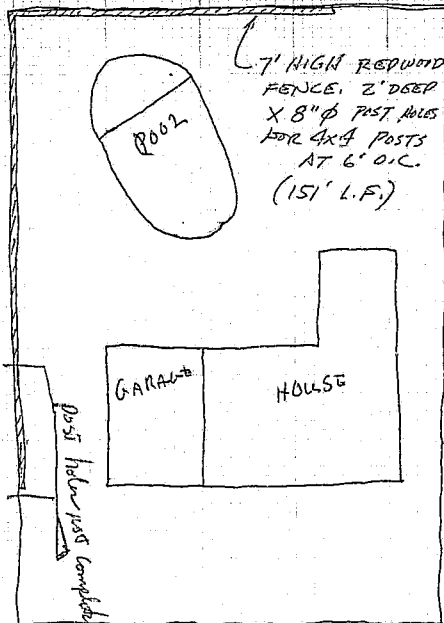 7' HIGH REDWOOD
FENCE. 2' DEEP
X 8"φ POST HOLES
FOR 4x4 POSTS
AT 6' O.C.
(151' L.F.)
POOL
GARAGE
HOUSE
Post holes just complete